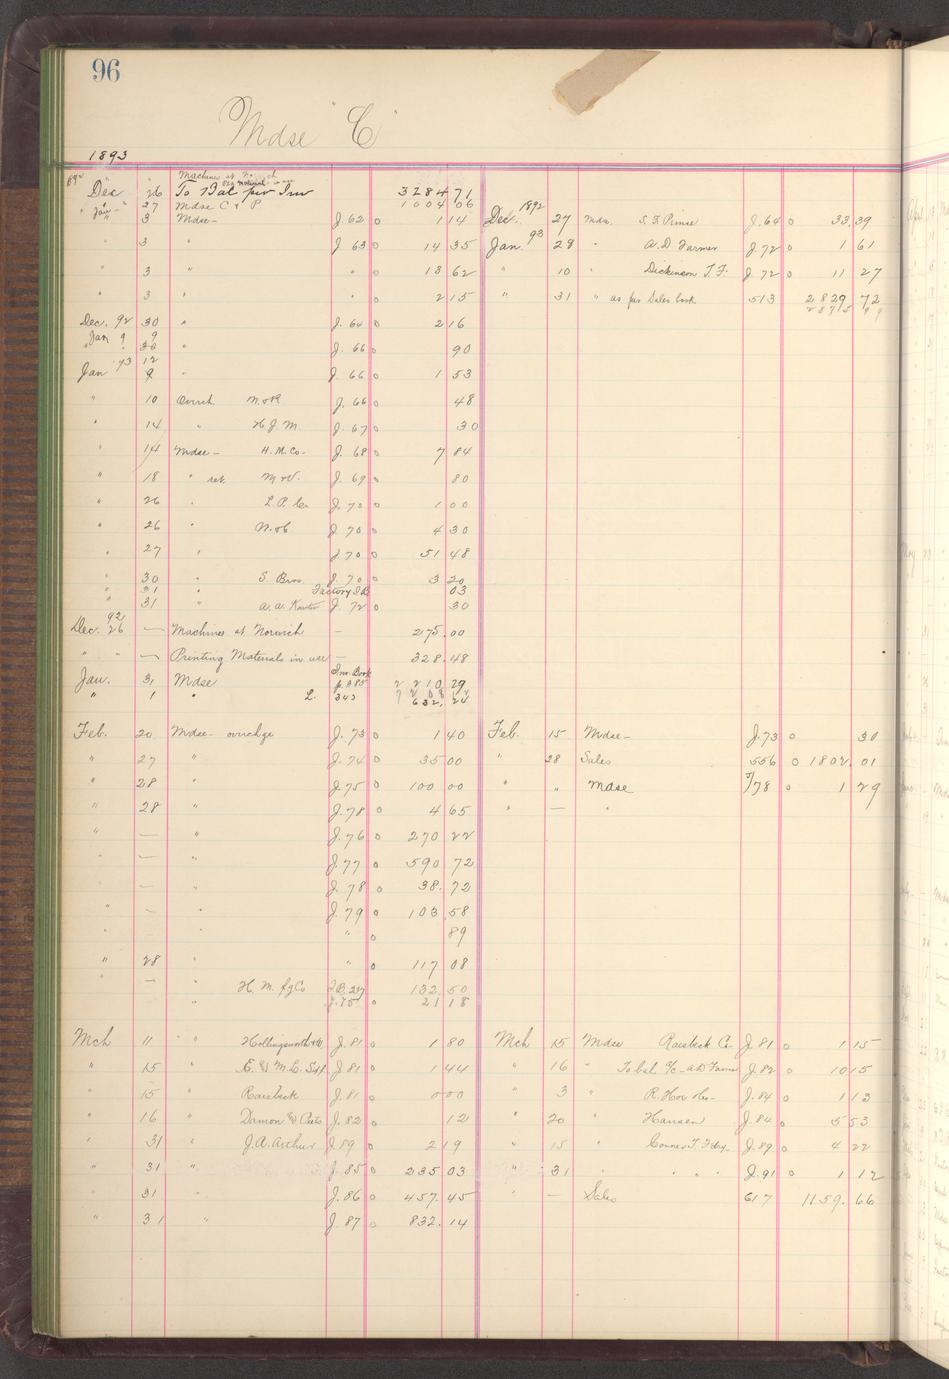 96
Mdse "C"
1893
Machines at Norwich
Dec 26 To Bal per Inv 3284 71
" 27 Mdse C & P 1004 06
Jan 3 Mdse- J. 62 0 1 14
" 3 " J. 63 0 14 35
" 3 " " 0 13 62
" 3 " " 0 2 15
Dec. 92 30 " J. 64 0 2 16
Jan 9
" " J. 66 0 90
Jan 93 12
9 " J. 66 0 1 53
" 10 Overch. J. 66 0 48
" 14 " H. J. M. J. 67 0 30
" 14 Mdse- H. M. Co. J. 68 0 7 84
" 18 " ret J. 69 0 80
" 26 " L. P. Co J. 70 0 1 00
" 26 " J. 70 0 4 30
" 27 " J 70 0 51 48
" 30 " S. Bros. J. 70 0 3 20
" 31 " Factory 03
" 31 " J. 72 0 30
Dec. 92 26 — Machines at Norwich — 275.00
" " — Printing Materials in use — 328.48
Jan. 31 Mdse Inv Book p. 385 2 210 29
" 1 " L. 343 632.24
Feb. 20 Mdse- overchge J. 73 0 1 40
" 27 " J. 74 0 35 00
" 28 " J. 75 0 100 00
" 28 " J. 78 0 4 65
" — " J. 76 0 270 22
" — " J. 77 0 590 72
" — " J. 78 0 38.72
" — " J. 79 0 103.58
" " 0 89
" 28 " " 0 117 08
" — " H. M. fg Co 132.50
" J. 75 0 21 18
Mch 11 " " J. 81 0 1 80
" 15 " J. 81 0 1 44
" 15 " Raisbeck J. 81 0 0 00
" 16 " J. 82 0 12
" 31 " J. A. Arthur J. 89 0 2 19
" 31 " J. 85 0 235 03
" 31 " J. 86 0 457.45
" 31 " J. 87 0 832.14
Dec. 1892 27 Mdse. J. 64 0 33.39
Jan 93 28 " A. D. Farmer J. 72 0 1 61
" 10 " Dickinson T. F. J. 72 0 11 27
" 31 " as per Sales book 513 2 829 72
Feb. 15 Mdse- J. 73 0 30
" 28 Sales 556 0 1802.01
" " Mdse J/78 0 1 29
" — "
Mch 15 Mdse Raisbeck Co J. 81 0 1 15
" 16 " To bal. J. 82 0 10 15
3 " R. Hoe J. 84 0 1 13
" 20 " Hansen J. 84 0 5 53
" 15 " Conner T. Fdry. J. 89 0 4 22
" 31 " " " " J. 91 0 1 12
" — Sales 617 1159.66